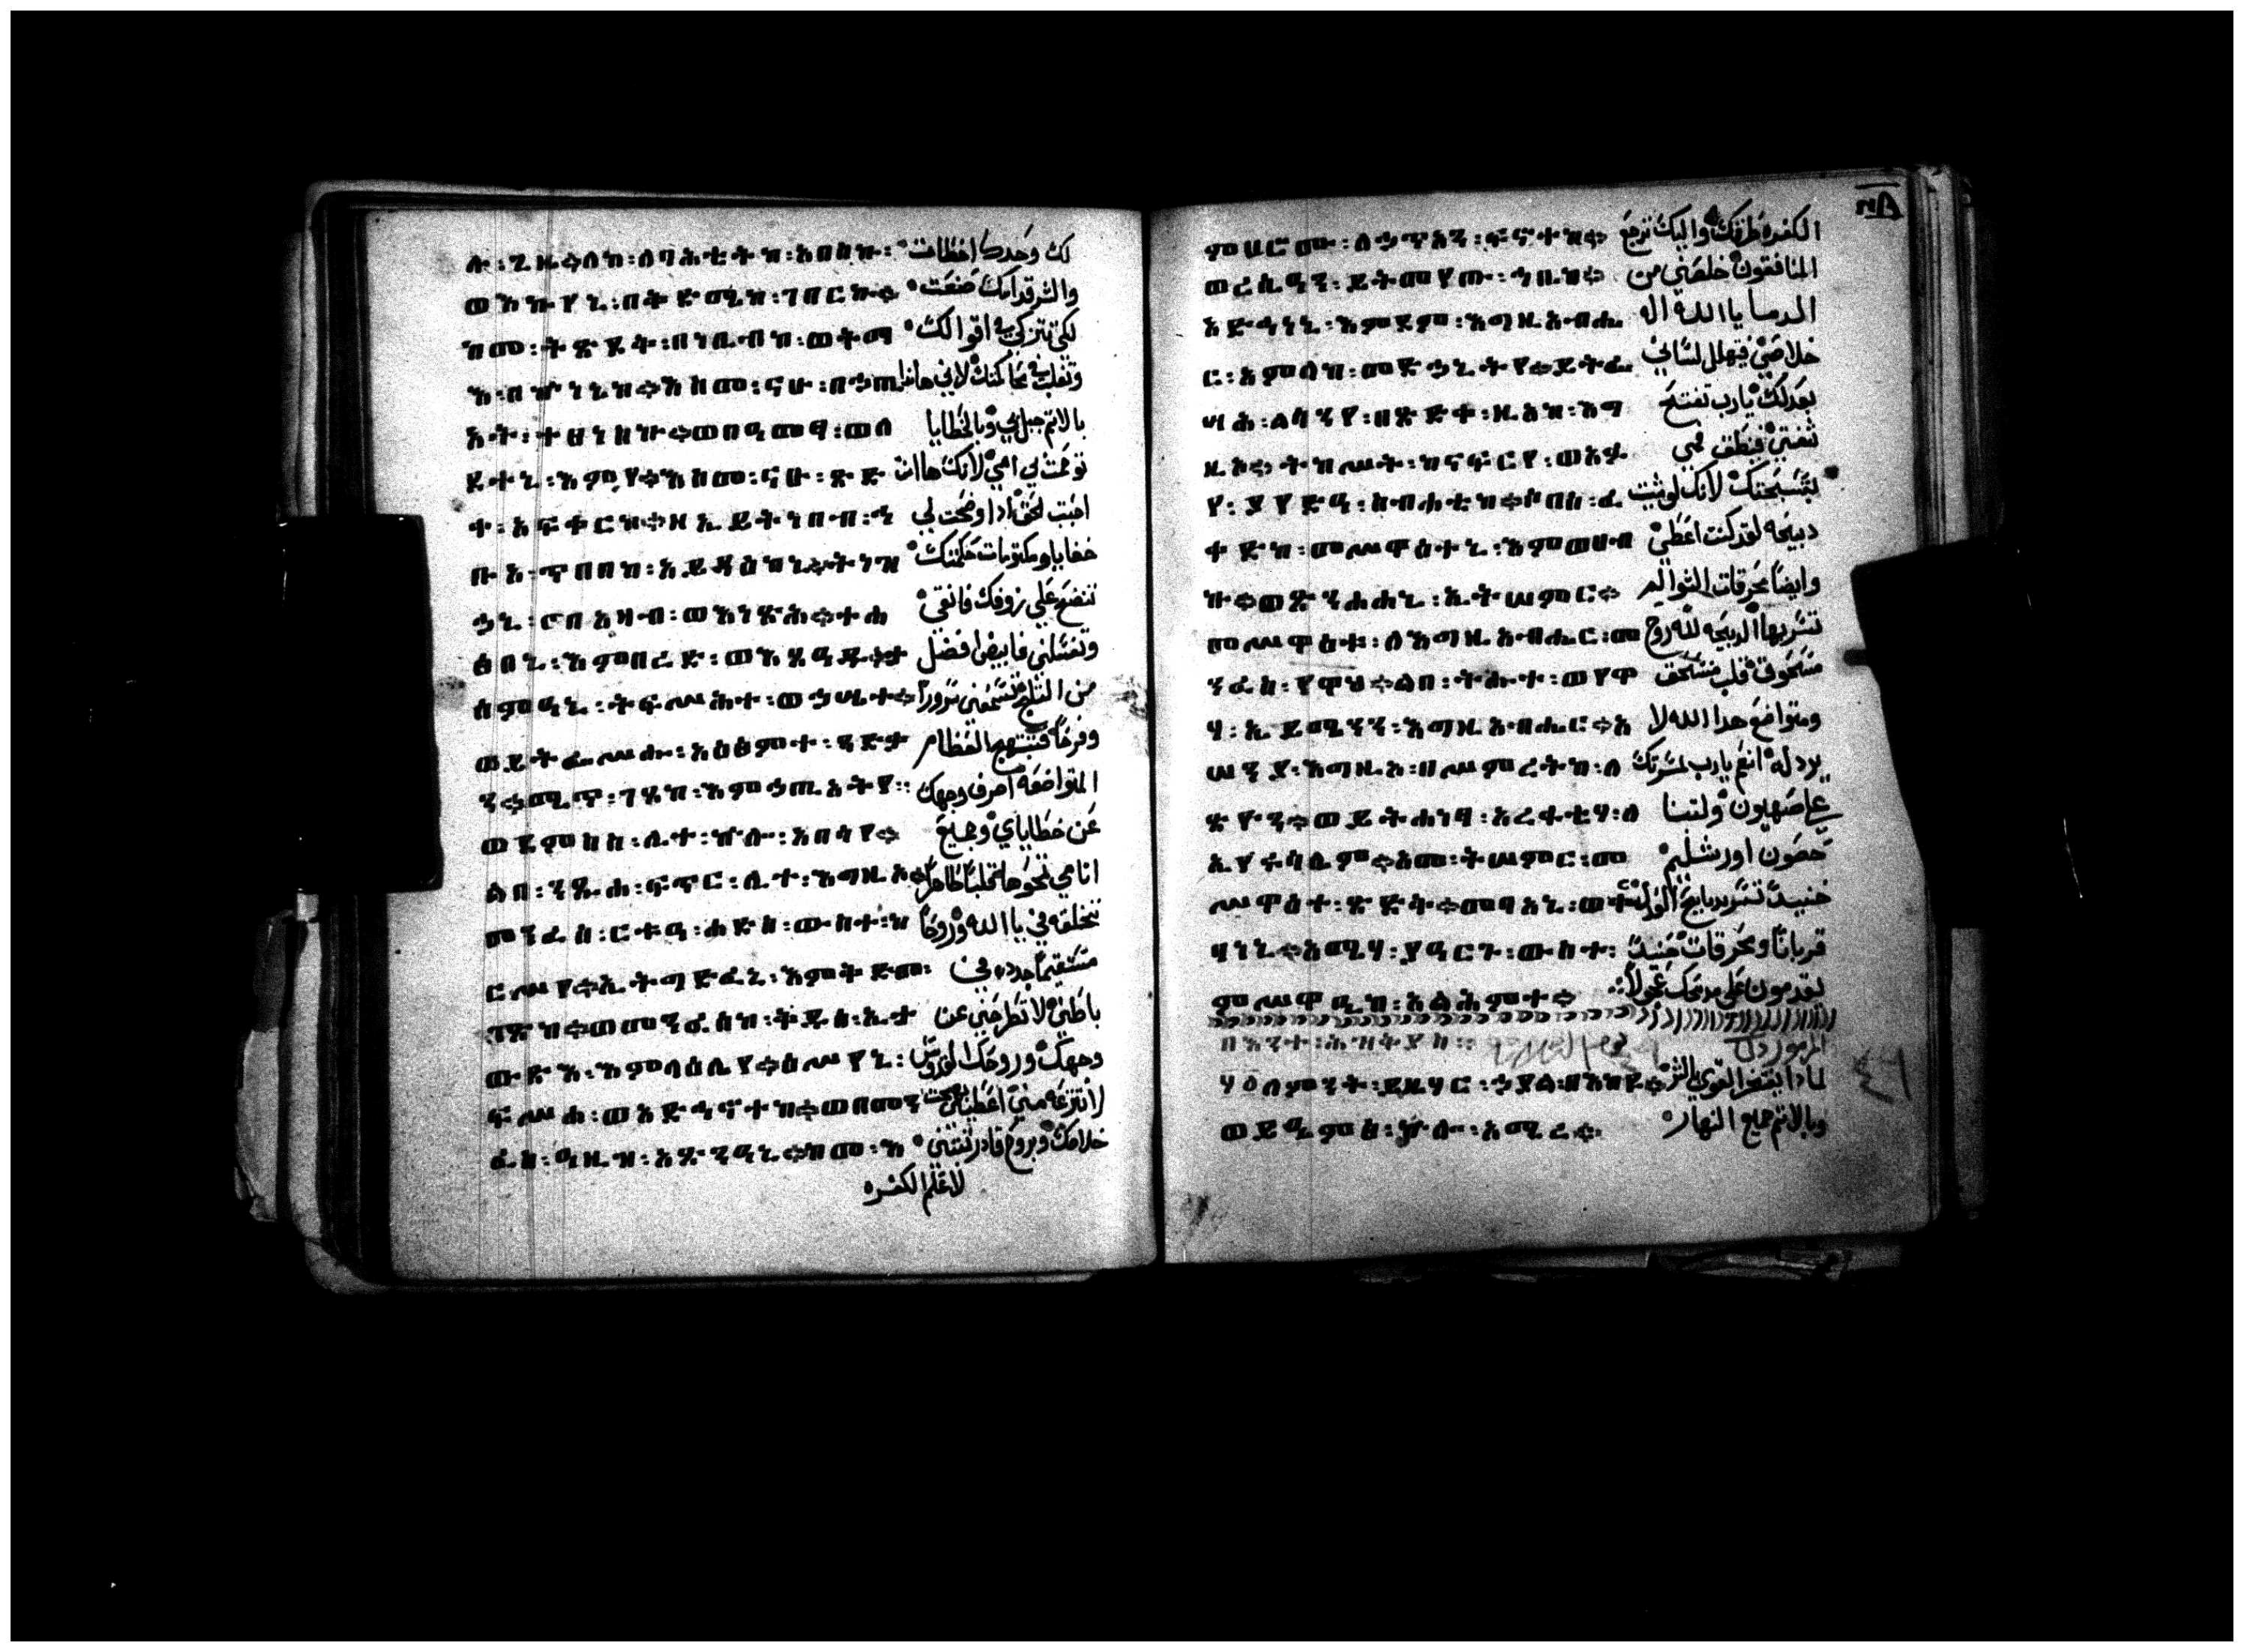 ሉ፡ጊዜ።ለከ፡ለባሕቲትከ፡አበስኩ፡ لك وحدك اخطات
ወእኩየኒ፡በቅድሜከ፡ገበርኩ። والشر قدامك صنعت
ከመ፡ትጽደቅ፡በነቢብከ፡ወትማ لكي تتزكي في اقوالك
እ፡በኵነኔከ።እስመ፡ናሁ፡በኃጢ وتغلب في محاكمتك لاني هاندا
አት፡ተፀነስኩ።ወበዓመፃ፡ወለ بالاتم حبل بي وبالخطايا
ደተኒ፡እምየ።እስመ፡ናሁ፡ጽድ توحمت لي امي لانك هاانت
ቀ፡አፍቀርከ።ዘኢይትነበብ፡ኅ احببت الحق ادا وضحت لي
ቡአ፡ጥበብከ፡አይዳዕከኒ።ትነዝ خفايا ومكتومات حكمتك
ኃኒ፡በአዛብ፡ወእነጽሕ።ተሐ تنضح علي بزوفك فانقي
ፀበኒ፡እምበረድ፡ወእጸዓዱ። وتغسلني فابيض افضل
ታሰምዓኒ፡ትፍሥሕተ፡ወኃሤተ። من التلج تسمعني سرورا
ወይትፌሥሑ፡አዕፅምት፡ وفرحا فتبتهج العظام
ን።ሚጥ፡ገጸከ፡እምኃጢአትየ፡ المتواضعه اصرف وجهك
ወደምስስ፡ሊተ፡ኵሎ፡አበሳየ። عن خطاياي وجميع
ልበ፡ንጹሐ፡ፍጥር፡ሊተ፡እግዚአ። اتامي تمحوها قلبا طاهرا
መንፈሰ፡ርቱዐ፡ሐድስ፡ውስተ፡ከ تخلقه في ياالله وروحا
ርሥየ።ኢትግድፈኒ፡እምቅድመ፡ مستقيما جدده في
ገጽከ።ወመንፈሰከ፡ቅዱሰ፡ኢት باطني لا تطرحني عن
ውፅእ፡እምላዕሌየ።ዕሥየኒ፡ وجهك وروحك القدوس
ፍሥሐ፡ወአድኅኖተከ።ወበመን لا تنزعه مني اعطيني بهجت
ፈስ፡ዓዚዝ፡አጽንዓኒ።ከመ፡እ خلاصك وبروح قادر تبتني
لاعلم الكفره
ምሀሮሙ፡ለኃጥአን፡ፍኖተከ። الكفره طرقك واليك ترجع
ወረሲዓን፡ይትመየጡ፡ኀቤከ። المنافقون خلصني من
አድኅነኒ፡እምደም፡እግዚአብሔ الدما ياالله اله
ር፡አምላከ፡መድኃኒትየ።ይትፌ خلاصي فيهلل لساني
ሣሕ፡ልሳንየ፡በጽድቀ፡ዚአከ፡እግ بعدلك يارب تفتح
ዚአ።ትከሥት፡ከናፍርየ፡ወአፉ شفتي فينطق فمي
የ፡ያየድዕ፡ስብሐቲከ።ሶበሰ፡ፈ بتسبحتك لانك لو شيت
ቀድከ፡መሥዋዕተኒ፡እምወሀብ دبيحه لقد كنت اعطي
ኩ።ወጽንሐሕኒ፡ኢትሠምር። وايضا محرقات
መሥዋዕት፡ለእግዚአብሔር፡መ تسر بها الدبيحه لله روح
ንፈስ፡የዋህ።ልበ፡ትሑተ፡ወየዋ مسحوق قلب منسحق
ሃ፡ኢይሜንን፡እግዚአብሔር።አ ومتواضع هدا الله لا
ሠንያ፡እግዚአ፡በሥምረትከ፡ለ يردله انعم يارب بمسرتك
ጽዮን።ወይትሐነፃ፡አረፋቲሃ፡ለ علي صهيون ولتبنا
ኢየሩሳሌም።አመ፡ትሠምር፡መ حصون اورشليم
ሥዋዕተ፡ጽድቅ።መባአኒ፡ወቍ حنيد تسر بدبايح
ባነኒ።አሜሃ፡ያዓርጉ፡ውስተ፡ قربانا ومحرقات حنيد
ምሥዋዒከ፡አልህምተ። يقدمون علي مدبحك عجولا
በእንተ፡ሕዝቅያስ። المزمور
ለምንት፡ይዜሃር፡ኃያል፡በእከይ። لمادا يفتخر القوي بالشر
ወይዔምፅ፡ኵሎ፡አሚረ። وبالاتم جميع النهار